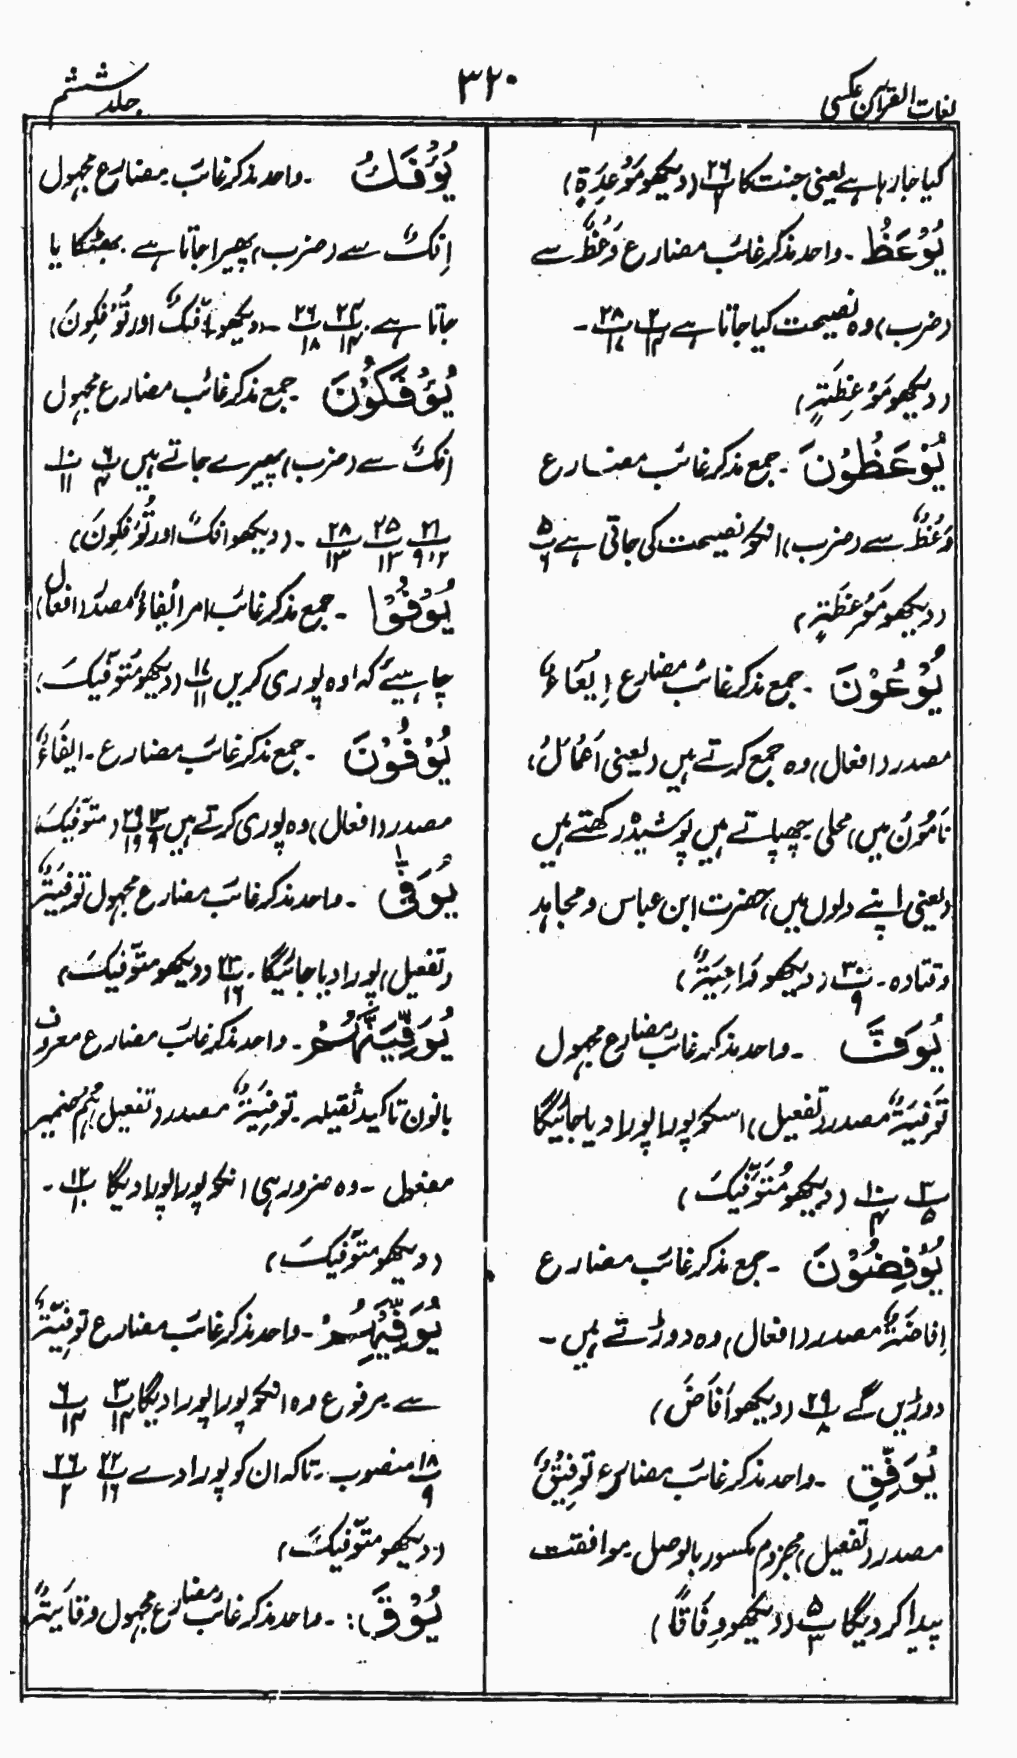 لغات القرآن عکسی
۳۲۰
جلد ششم
کیا جا رہا ہے یعنی جنت کا پ ۲۶/۱ (دیکھو مَوْعِدَةٍ)
یُوْعَظُ ۔ واحد مذکر غائب مضارع وَعْظٌ سے
(ضرب) وہ نصیحت کیا جاتا ہے پ ۲/۱۴ پ ۲۸/۱۷ ۔
(دیکھو مَوْعِظَۃٍ)
یُوْعَظُوْنَ ۔ جمع مذکر غائب مضارع
وَعْظٌ سے (ضرب) انکو نصیحت کی جاتی ہے پ ۵/۶
(دیکھو مَوْعِظَۃٍ)
یُوْعُوْنَ ۔ جمع مذکر غائب مضارع اِیْعَاءٌ
مصدر (افعال) وہ جمع کرتے ہیں (یعنی اَعْمَالُ
نَامُوں میں) محلی چھپاتے ہیں پوشیدہ رکھتے ہیں
(یعنی اپنے دلوں میں) حضرت ابن عباس و مجاہد
وقتادہ ۔ پ ۳۰/۹ (دیکھو وَاعِیَۃٌ)
یُوَفَّ ۔ واحد مذکر غائب مضارع مجہول
تَوْفِیَۃٌ مصدر (تفعیل) اسکو پورا پورا دیا جائیگا
پ ۳/۵ پ ۱۰/۴ (دیکھو مُتَوَفِّیْکَ)
یُوْفِضُوْنَ ۔ جمع مذکر غائب مضارع
اِفَاضَۃٌ مصدر (افعال) وہ دوڑتے ہیں ۔
دوڑیں گے پ ۲۹/۸ (دیکھو اَفَاضَ)
یُوَفِّقِ ۔ واحد مذکر غائب مضارع توفِیْقٌ
مصدر (تفعیل) مجزوم مکسور بالوصل موافقت
پیدا کر دیگا پ ۵/۳ (دیکھو وِفَاقًا)
یُؤْفَکُ ۔ واحد مذکر غائب مضارع مجہول
اِفْکٌ سے (ضرب) پھیرا جاتا ہے بھٹکا یا
جاتا ہے پ ۲۴/۱۲ پ ۲۶/۱۸ ۔ (دیکھو اُفِکَ اور تُؤْفَکُوْنَ)
یُؤْفَکُوْنَ ۔ جمع مذکر غائب مضارع مجہول
افکٌ سے (ضرب) پھیرے جاتے ہیں پ ۶/۱۴ پ ۱۰/۱۱
۲۱/۹،۲ ۲۵/۱۳ ۲۸/۱۳ ۔ (دیکھو افکٌ اور تُؤْفَکُوْنَ)
یُوْفُوْا ۔ جمع مذکر غائب امر اِیْفَاءٌ مصدر (افعال)
چاہیئے کہ وہ پوری کریں پ ۱۷/۱۱ (دیکھو مُتَوَفِّیْکَ)
یُوْفُوْنَ ۔ جمع مذکر غائب مضارع ۔ ایفَاءٌ
مصدر (افعال) وہ پوری کرتے ہیں پ ۱۳/۹ پ ۲۹/۱۹ (متوفّیک)
یُوَفّٰی ۔ واحد مذکر غائب مضارع مجہول توفِیَۃٌ
(تفعیل) پورا دیا جائیگا ۔ پ ۲۳/۱۶ (دیکھو متوفّیکَ)
یُوَفِّیَنَّھُمْ ۔ واحد مذکر غائب مضارع معروف
بانون تاکید ثقیلہ ۔ توفِیَۃٌ مصدر (تفعیل) ہُم ضمیر
مفعول ۔ وہ ضرور ہی انکو پورا پورا دیگا پ ۱۲/۱۰ ۔
(دیکھو متوفّیکَ)
یُوَفِّیْھِمْ ۔ واحد مذکر غائب مضارع توفِیَۃٌ
سے مرفوع وہ انکو پورا پورا دیگا پ ۳/۱۴ پ ۶/۱۴
پ ۱۸/۹ منصوب ۔ تاکہ ان کو پورا دے پ ۲۲/۱۶ پ ۲۶/۲
(دیکھو متوفّیکَ)
یُوْقَ: ۔ واحد مذکر غائب مضارع مجہول وقَایَۃٌ